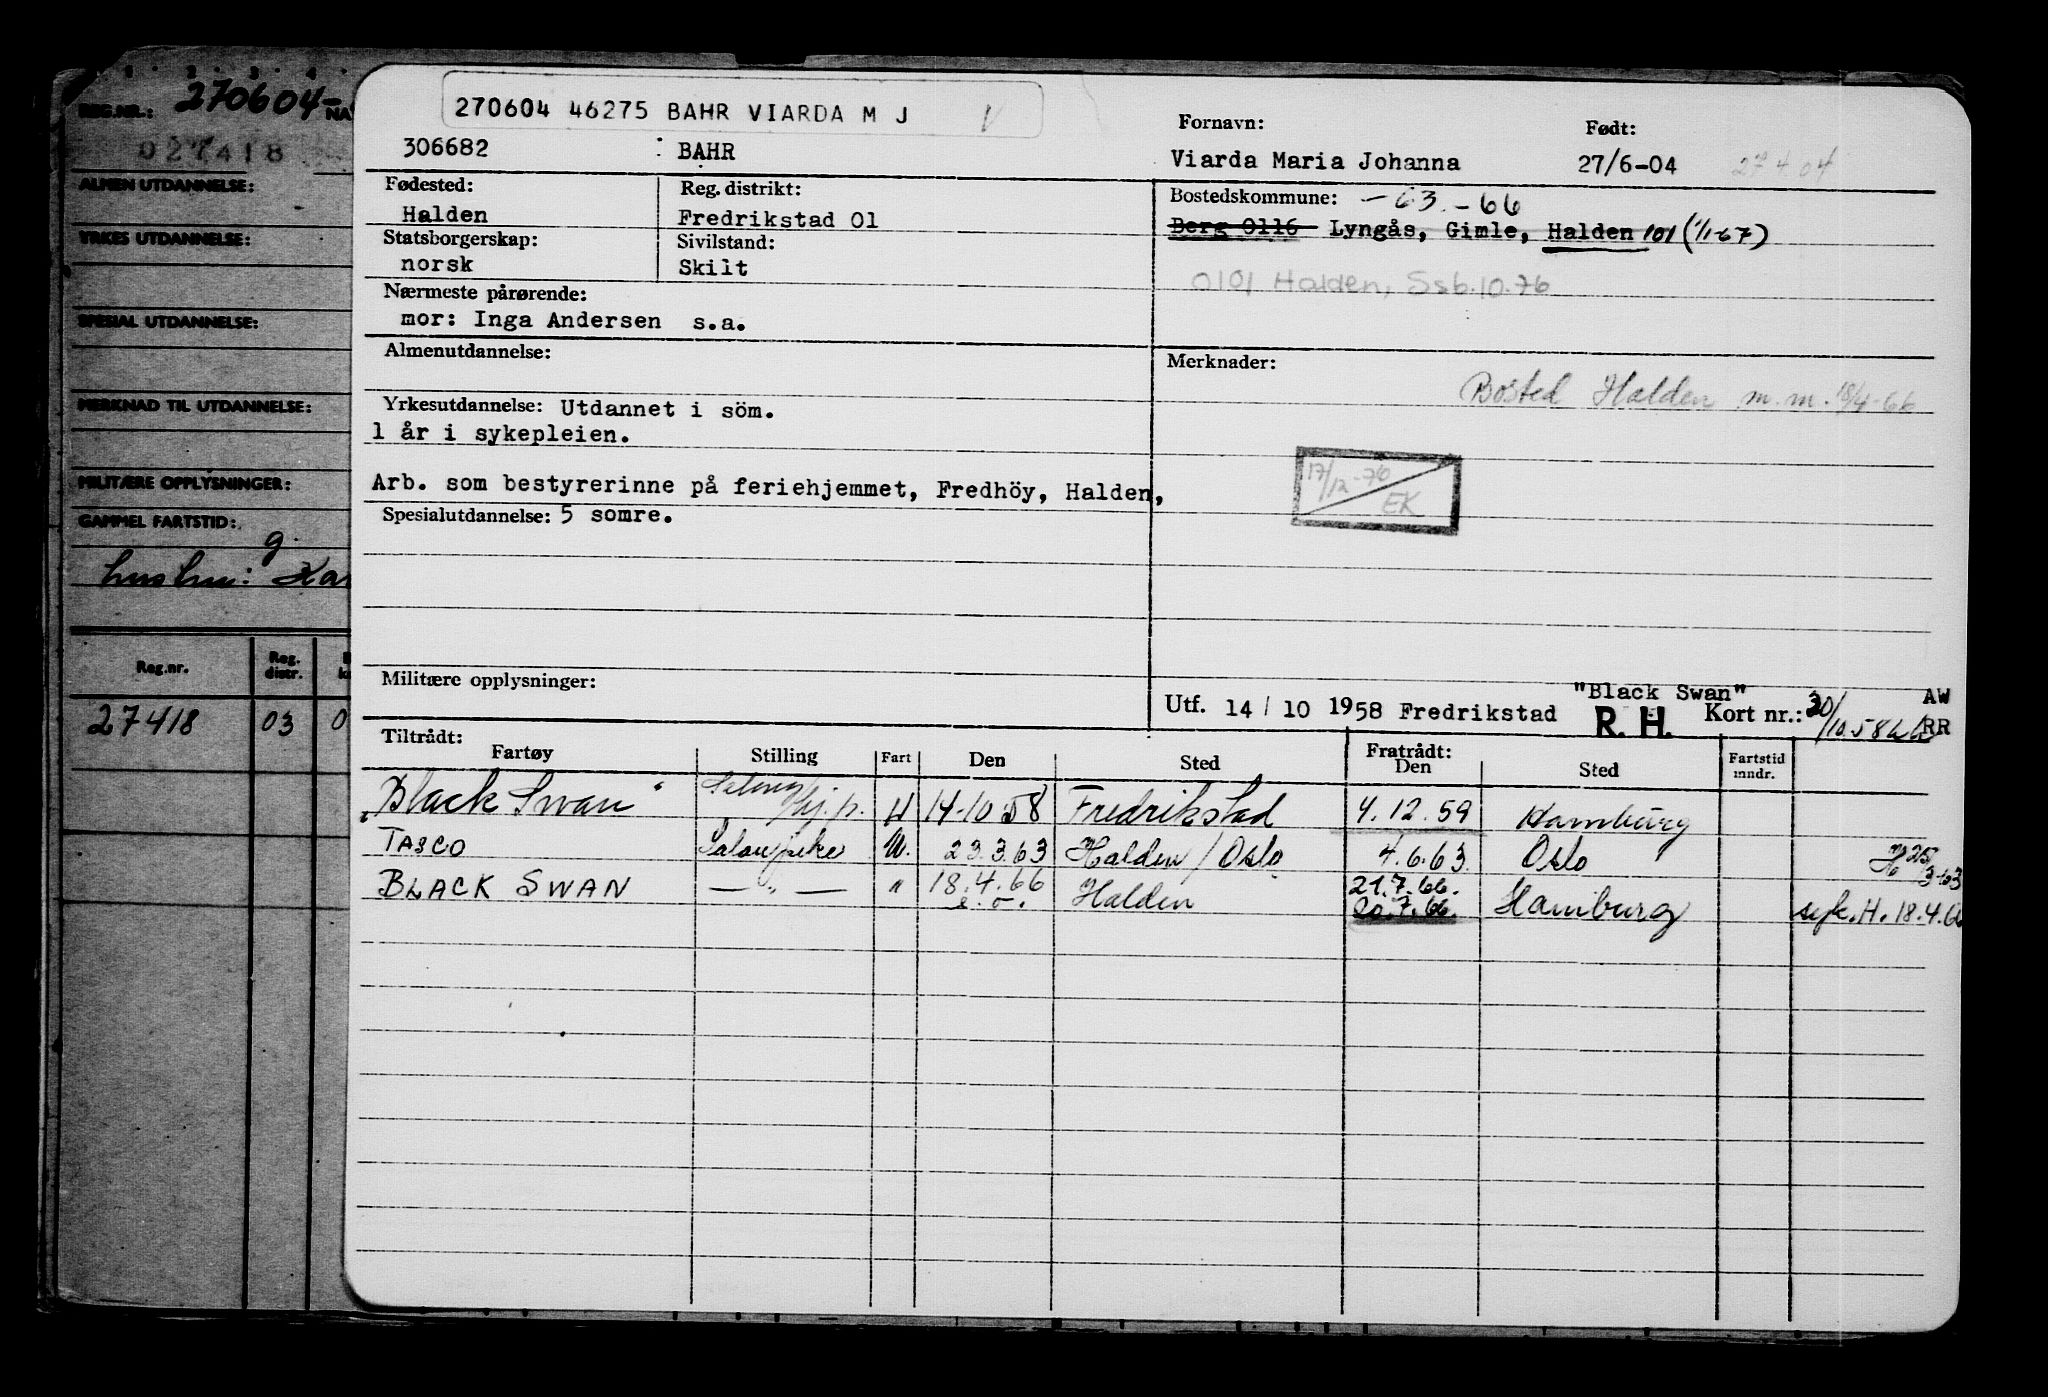 REG.NR.: 270604- NA
027418
ALMEN UTDANNELSE:
YRKES UTDANNELSE:
SPESIAL UTDANNELSE:
MERKNAD TIL UTDANNELSE:
MILITÆRE OPPLYSNINGER:
GAMMEL FARTSTID:
Reg.nr. Reg. distr.
27418 03 0
270604 46275 BAHR VIARDA M J V
306682 BAHR
Fornavn: Født:
Viarda Maria Johanna 27/6-04 27.4.04
Fødested: Reg. distrikt: Bostedskommune: -63.-66
Halden Fredrikstad 01 Berg 0116 Lyngås, Gimle, Halden 101 (1/1-67)
Statsborgerskap: Sivilstand:
norsk Skilt
0101 Halden, Ssb.10.76
Nærmeste pårørende:
mor: Inga Andersen s.a.
Almenutdannelse: Merknader:
Bosted Halden m.m. 18/4-66
Yrkesutdannelse: Utdannet i söm.
1 år i sykepleien.
17/12-76 EK
Arb. som bestyrerinne på feriehjemmet, Fredhöy, Halden,
Spesialutdannelse: 5 somre.
Militære opplysninger:
"Black Swan" AW
Utf. 14/10 1958 Fredrikstad R. H. Kort nr.: 30/10.58 RR
Tiltrådt: Fratrådt:
Fartøy Stilling Fart Den Sted Den Sted Fartstid mndr.
"Black Swan" 14-10-58 Fredrikstad 4.12.59 Hamburg
TASCO Salonpike U. 23.3.63 Halden / Oslo 4.6.63 Oslo H 25/3-63
BLACK SWAN — " — " 18.4.66 Halden 21.7.66. Hamburg H. 18.4.66
20.7.66.